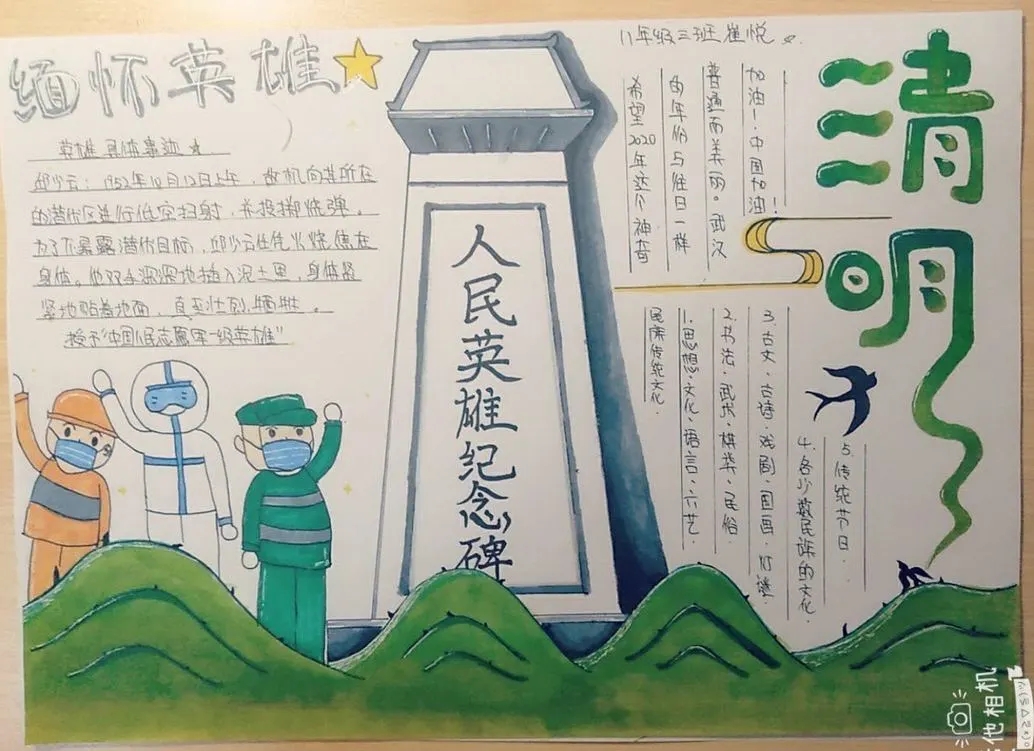 缅怀英雄
英雄具体事迹
邱少云：1952年10月12日上午，敌机向其所在
的潜伏区进行低空扫射，并投掷烧弹。
为了不暴露潜伏目标，邱少云任凭火烧焦在
身体。他双手深深地插入泥土里，身体紧
紧地贴着地面，直至壮烈牺牲。
授予"中国人民志愿军一级英雄"
人民英雄纪念碑
八年级三班崔悦
加油！中国加油！
普通而美丽。武汉
的年份与往日一样
希望2020年这个神奇
清明
民族传统文化
1.思想.文化.语言.六艺.
2.书法.武术.棋类.民俗.
3.古文.古诗.戏剧.国画.灯谜.
4.各少数民族的文化.
5.传统节日.
他相机